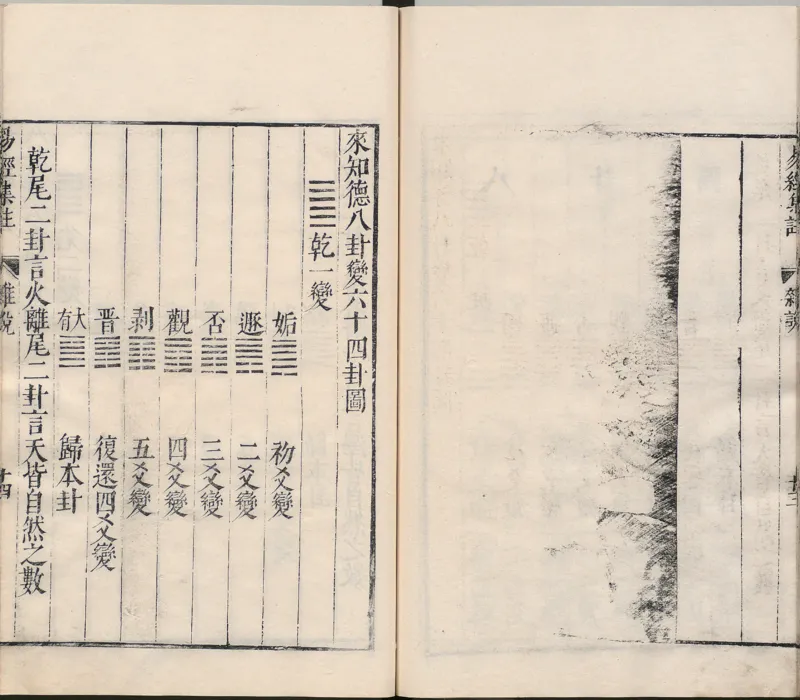 易經集註
雜說
來知德八卦變六十四卦圖
乾一變
姤 初爻變
遯 二爻變
否 三爻變
觀 四爻變
剥 五爻變
晋 復還四爻變
大有 歸本卦
乾尾二卦言火離尾二卦言天皆自然之數
易經集註
雜說
十四